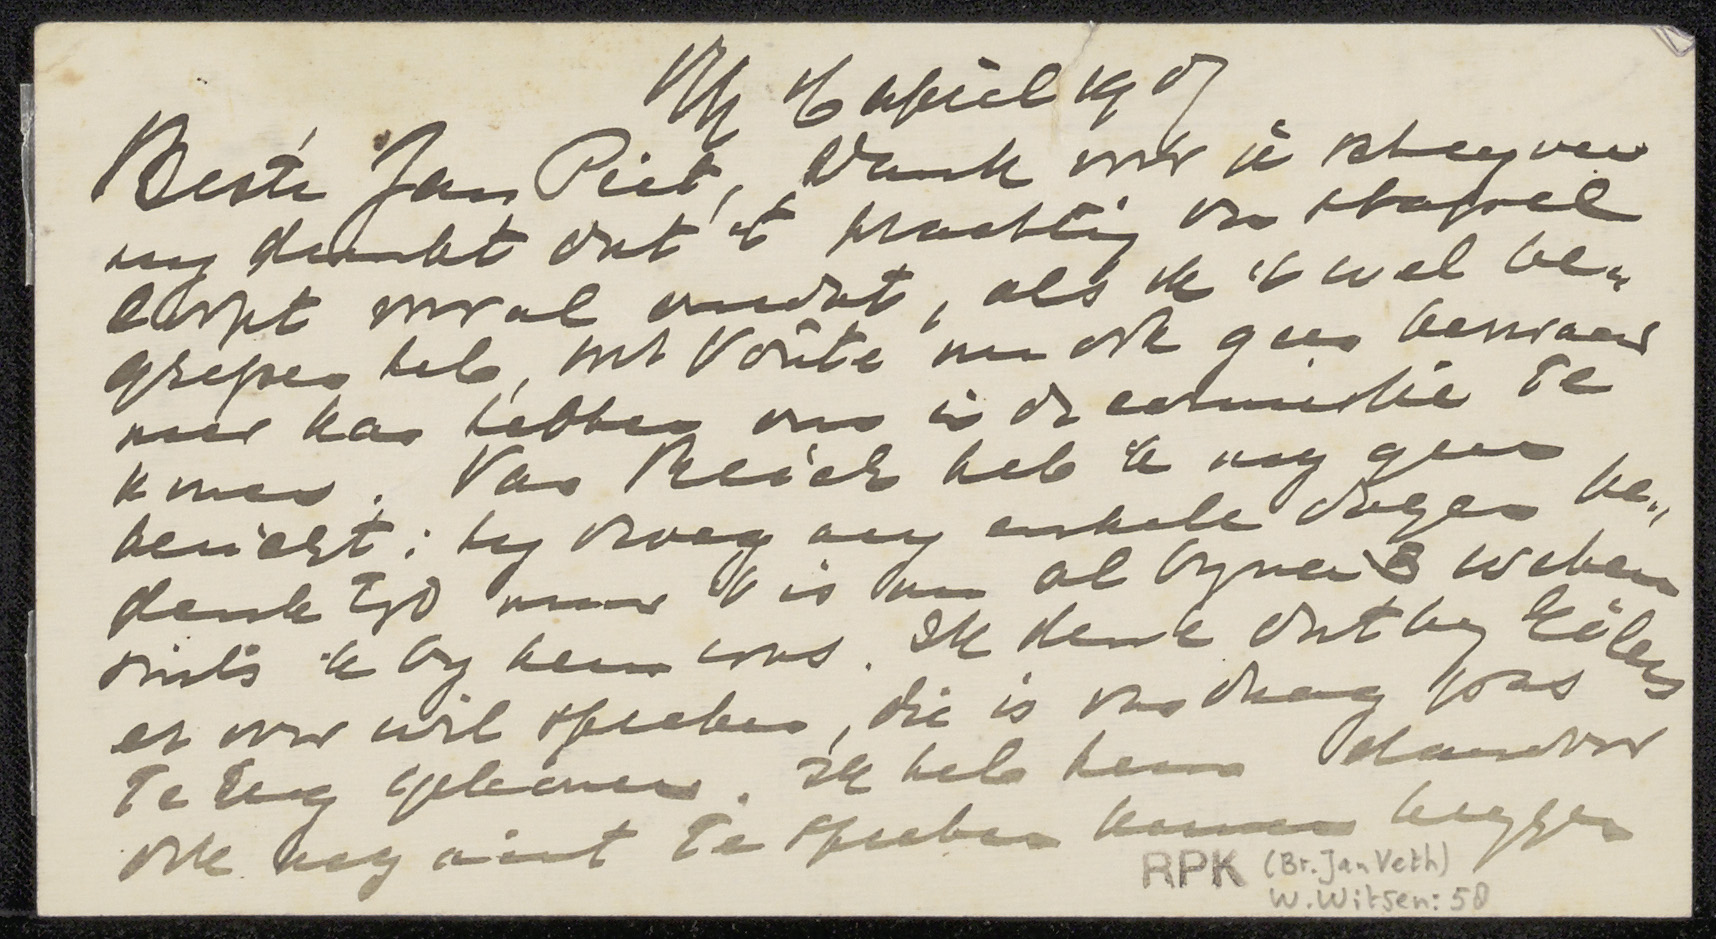 16 april 1907
Beste Jan Piet, Dank voor je schryven
my dunkt dat 't prachtig van stapel
loopt vooral omdat, als ik 't wel be„
grepen heb, Voûte nu ook geen bezwaar
meer kan hebben om in de commissie te
komen. Van heb ik nog geen
bericht; hy vroeg my enkele dagen be„
denktyd maar 't is nu al byna 3 weken
sints ik by hem was. Ik denk dat hy
er over wil spreken, die is vandaag pas
terug gekomen. Ik heb hem daarvoor
ook nog niet te spreken kunnen krygen
RPK (Br. Jan Veth)
W. Witsen: 58